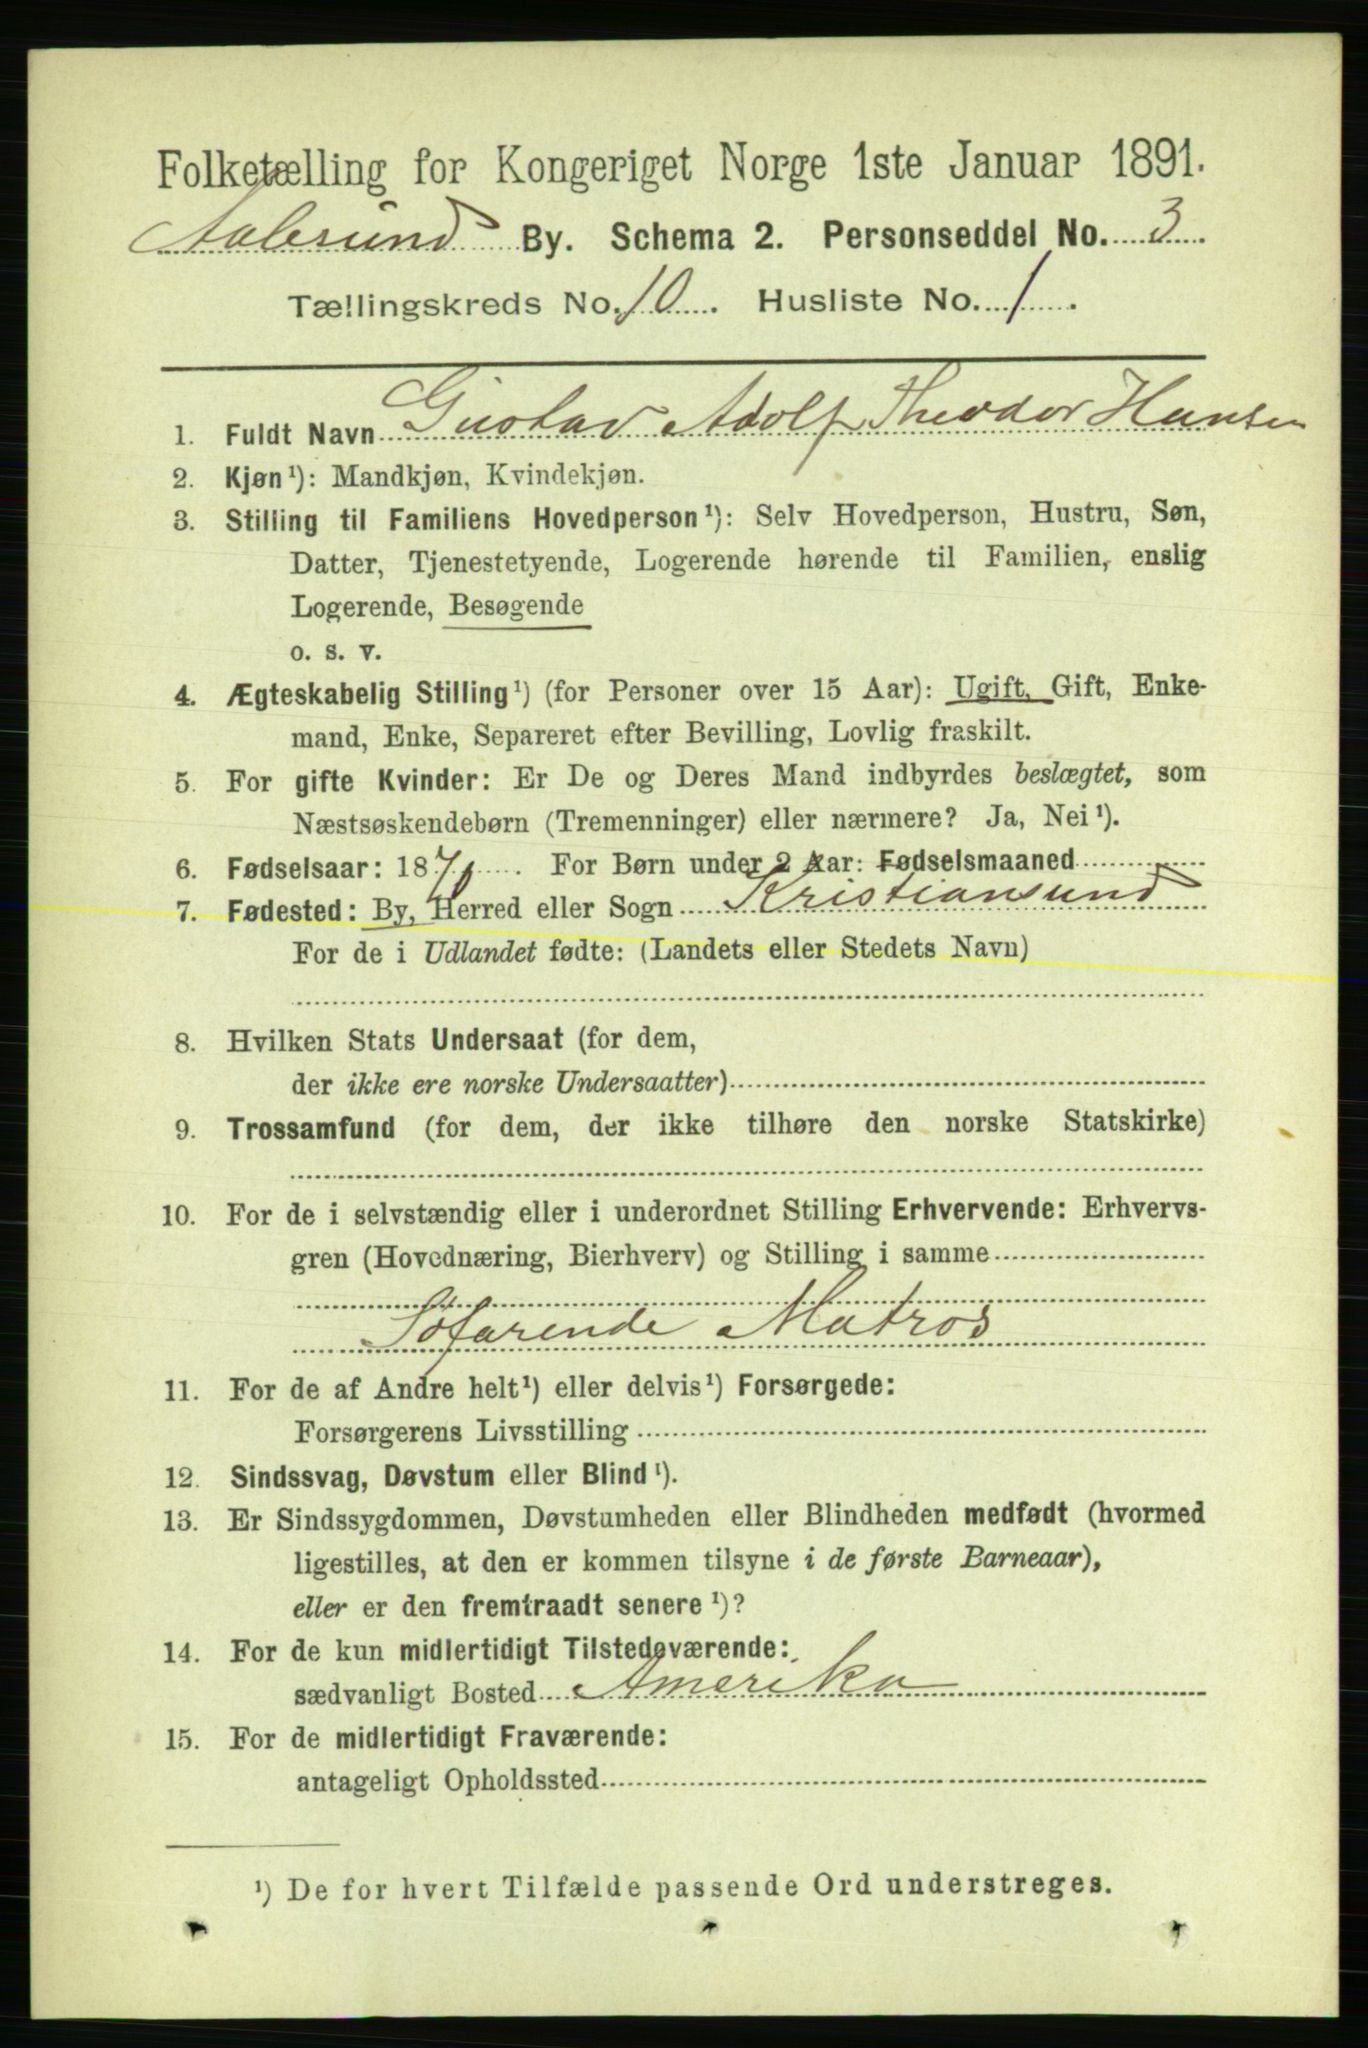 Folketælling for Kongeriget Norge 1ste Januar 1891.
Aalesund By. Schema 2. Personseddel No. 3
Tællingskreds No. 10. Husliste No. 1.
1. Fuldt Navn Gustav Adolf Theodor Hansen
2. Kjøn¹): Mandkjøn, Kvindekjøn.
3. Stilling til Familiens Hovedperson¹): Selv Hovedperson, Hustru, Søn,
Datter, Tjenestetyende, Logerende hørende til Familien, enslig
Logerende, Besøgende
o. s. v.
4. Ægteskabelig Stilling¹) (for Personer over 15 Aar): Ugift, Gift, Enke-
mand, Enke, Separeret efter Bevilling, Lovlig fraskilt.
5. For gifte Kvinder: Er De og Deres Mand indbyrdes beslægtet, som
Næstsøskendebørn (Tremenninger) eller nærmere? Ja, Nei¹).
6. Fødselsaar: 1870. For Børn under 2 Aar: Fødselsmaaned
7. Fødested: By, Herred eller Sogn Kristiansund
For de i Udlandet fødte: (Landets eller Stedets Navn)
8. Hvilken Stats Undersaat (for dem,
der ikke ere norske Undersaatter)
9. Trossamfund (for dem, der ikke tilhøre den norske Statskirke)
10. For de i selvstændig eller i underordnet Stilling Erhvervende: Erhvervs-
gren (Hovednæring, Bierhverv) og Stilling i samme
Søfarende Matros
11. For de af Andre helt¹) eller delvis¹) Forsørgede:
Forsørgerens Livsstilling
12. Sindssvag, Døvstum eller Blind¹).
13. Er Sindssygdommen, Døvstumheden eller Blindheden medfødt (hvormed
ligestilles, at den er kommen tilsyne i de første Barneaar),
eller er den fremtraadt senere¹)?
14. For de kun midlertidigt Tilstedeværende:
sædvanligt Bosted Amerika
15. For de midlertidigt Fraværende:
antageligt Opholdssted
¹) De for hvert Tilfælde passende Ord understreges.